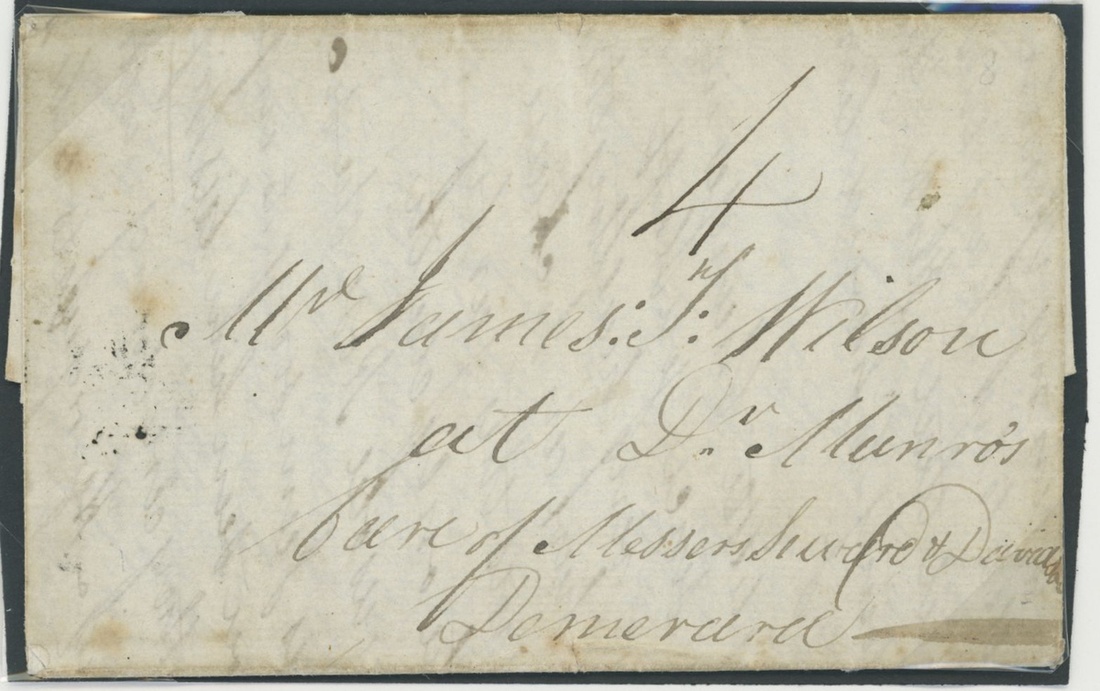 4
Mr James: Jnr: Wilson
at Dr. Munro's
Care of Messers & David
Demerara
8